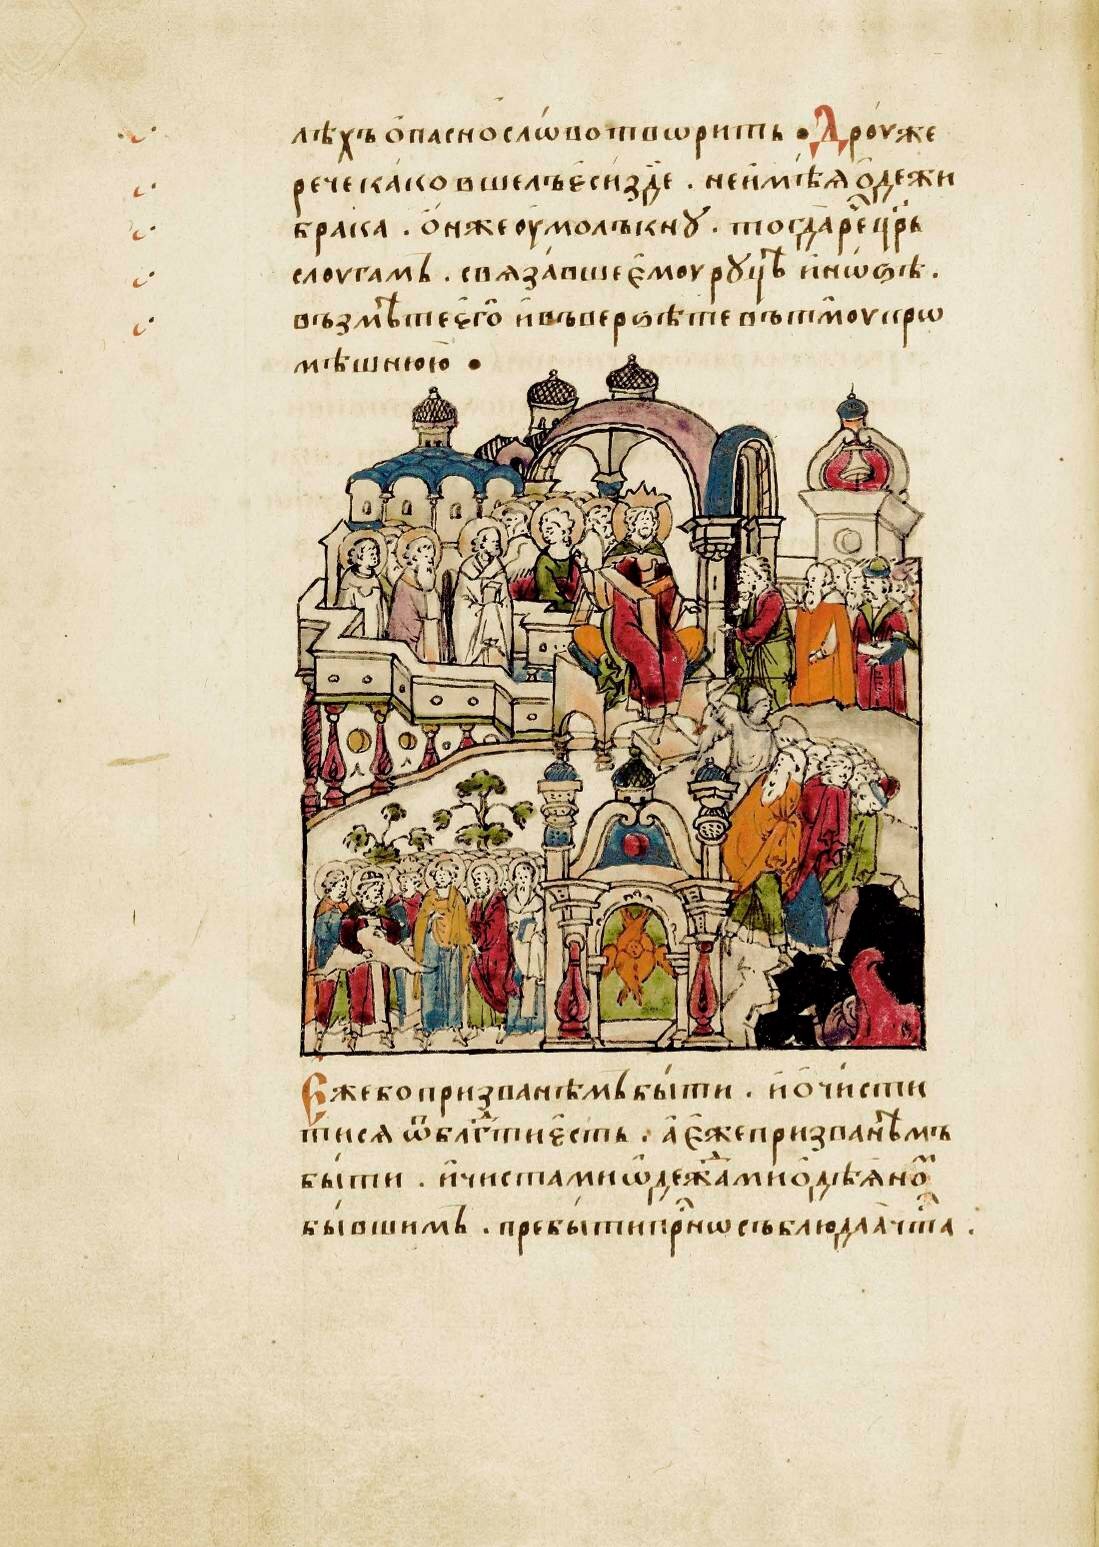 лѣхъ ѻ҆пасно слѡ́во творить • Дроуже
рече ка́ко вшелъ є҆сѝ зде̂ . не и҆мѣѧ ѻ҆дежи
брака . ѻ҆нже оумолъкнꙋ . тогда рече цр҃ь
слоугамъ . свѧза́вше є҆моу рꙋцѣ и҆ нѡꙁѣ .
възмѣте є҆го̀ и҆ въверꙁѣте въ тмоу крѡ
мѣшнюю •
Е҆же бо призваннѣмъ бы́ти . и҆ ѻ҆чи́сти
тисѧ ѿ бл҃гсти є҆сть . а҆ є҆же призваннѣмъ
бы́ти . и҆ чистами ѡ҆деждами ѻ҆дѣѧно
бы́вшимъ . пребы́ти при́сно съблюдаа чⷭта .